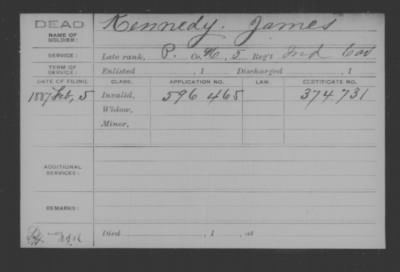 DEAD
NAME OF SOLDIER:
Kennedy. James
SERVICE:
Late rank, P. Co. 5 Reg't Ind Cav
TERM OF SERVICE:
Enlisted , 1 Discharged , 1
DATE OF FILING. CLASS. APPLICATION NO. LAW. CERTIFICATE NO.
1887 Feb, 5 Invalid, 596 465 374 731
Widow,
Minor,
ADDITIONAL SERVICES:
REMARKS:
Died , 1 , at